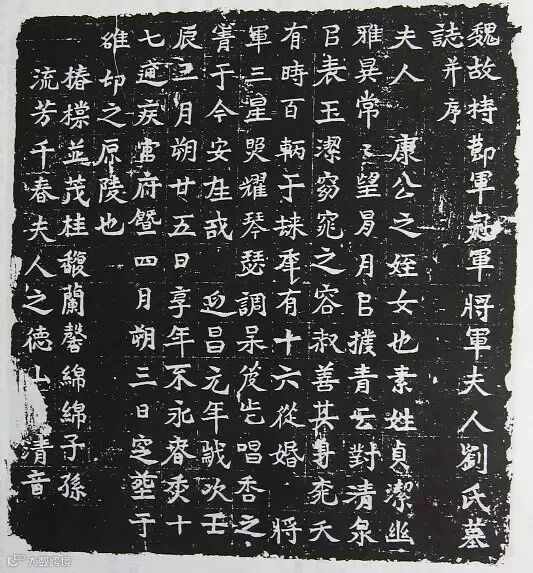 魏故持節軍冠軍將軍夫人劉氏墓
誌并序
夫人 康公之姪女也素姓貞潔幽
雅異常〻望月㠯擬青雲對清泉
㠯表玉潔窈窕之容叔善其身天
有時百輌于年有十六從婚 將
軍三星耀琴瑟調唱杏之
于今安在哉 延昌元年歲次壬
辰三月朔廿五日享年不永春秋十
七遘疾官府暨四月朔三日窆塟于
之原陵也
椿並茂桂馥蘭馨綿綿子孫
流芳千春夫人之德山清音